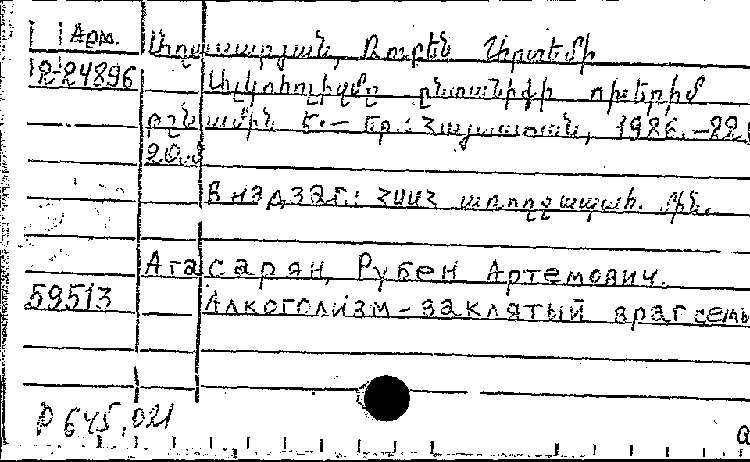 Арм.
Աղասարյան, Ռուբեն Արտեմի
12-24896 Ալկոհոլիզմը ընտանիքի ոխերիմ
թշնամին է.— Եր.: Հայաստան, 1986.—22
20.
В надзаг.: ՀՍՍՀ առողջապահ. մին.
Агасарян, Рубен Артемович.
59513 Алкоголизм-заклятый враг семь
Р 645.021